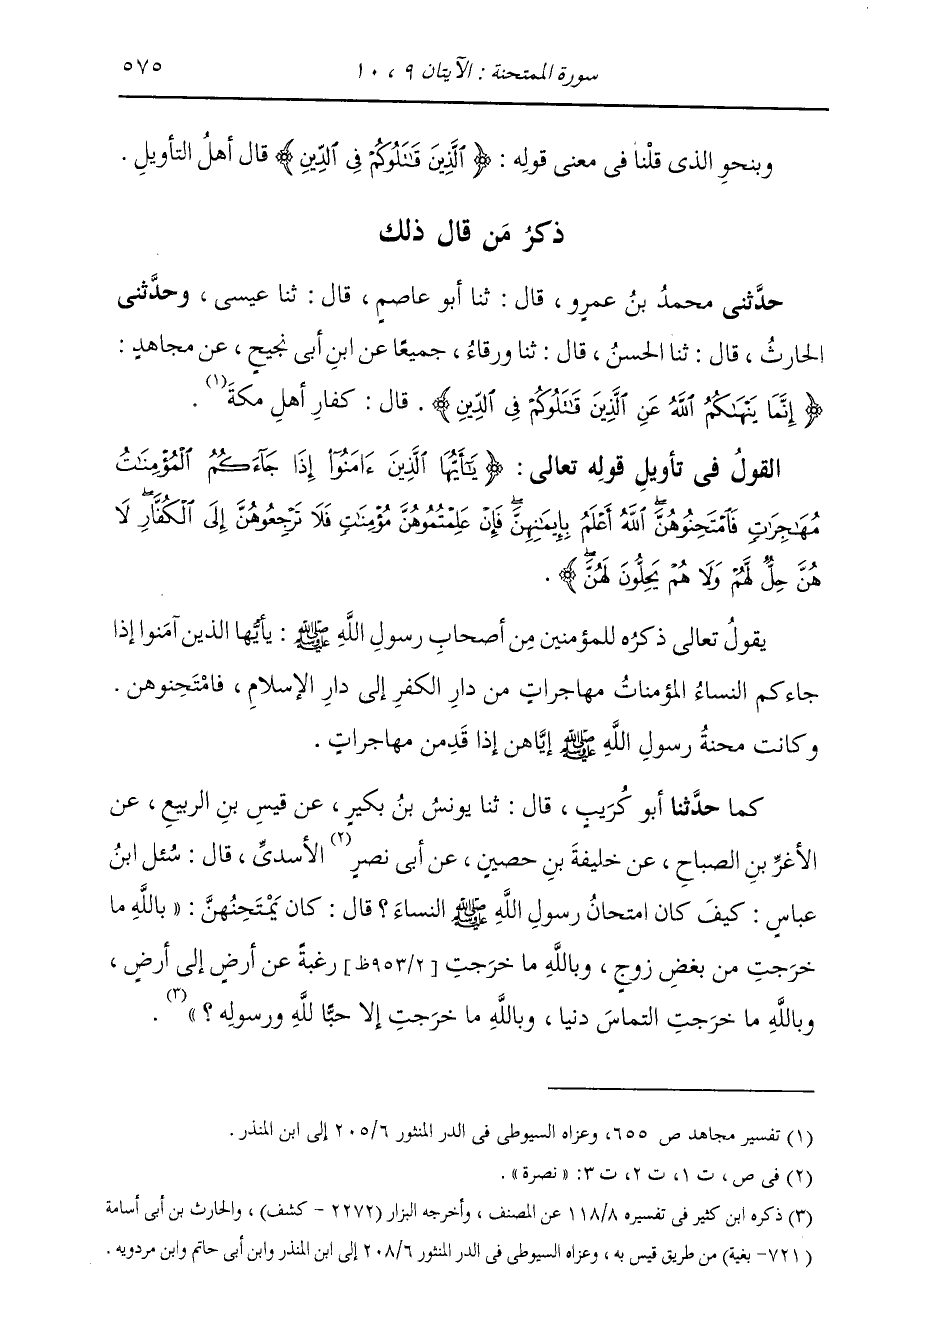 سورة الممتحنة : الآيتان ٩ ، ١٠ ٥٧٥
وبنحوِ الذى قلْنا فى معنى قولِه : ﴿ ٱلَّذِينَ قَـٰتَلُوكُمْ فِى ٱلدِّينِ ﴾ قال أهلُ التأويلِ .
ذكرُ مَن قال ذلك
حدَّثنى محمدُ بنُ عمرٍو ، قال : ثنا أبو عاصمٍ ، قال : ثنا عيسى ، وحدَّثنى
الحارثُ ، قال : ثنا الحسنُ ، قال : ثنا ورقاءُ ، جميعًا عن ابنِ أبى نجيحٍ ، عن مجاهدٍ :
﴿ إِنَّمَا يَنْهَـٰكُمُ ٱللَّهُ عَنِ ٱلَّذِينَ قَـٰتَلُوكُمْ فِى ٱلدِّينِ ﴾ . قال : كفارِ أهلِ مكةَ(١) .
القولُ فى تأويلِ قولِه تعالى : ﴿ يَـٰٓأَيُّهَا ٱلَّذِينَ ءَامَنُوٓا۟ إِذَا جَآءَكُمُ ٱلْمُؤْمِنَـٰتُ
مُهَـٰجِرَٰتٍ فَٱمْتَحِنُوهُنَّ ۖ ٱللَّهُ أَعْلَمُ بِإِيمَـٰنِهِنَّ ۖ فَإِنْ عَلِمْتُمُوهُنَّ مُؤْمِنَـٰتٍ فَلَا تَرْجِعُوهُنَّ إِلَى ٱلْكُفَّارِ ۖ لَا
هُنَّ حِلٌّ لَّهُمْ وَلَا هُمْ يَحِلُّونَ لَهُنَّ ۖ ﴾ .
يقولُ تعالى ذكرُه للمؤمنين مِن أصحابِ رسولِ اللَّهِ ﷺ : يأيُّها الذين آمَنوا إذا
جاءكم النساءُ المؤمناتُ مهاجراتٍ من دارِ الكفرِ إلى دارِ الإسلامِ ، فامْتَحِنوهن .
وكانت محنةُ رسولِ اللَّهِ ﷺ إيَّاهن إذا قَدِمن مهاجراتٍ .
كما حدَّثنا أبو كُرَيبٍ ، قال : ثنا يونسُ بنُ بكيرٍ ، عن قيسِ بنِ الربيعِ ، عن
الأغرِّ بنِ الصباحِ ، عن خليفةَ بنِ حصينٍ ، عن أبى نصرٍ(٢) الأسدىِّ ، قال : سُئل ابنُ
عباسٍ : كيفَ كان امتحانُ رسولِ اللَّهِ ﷺ النساءَ ؟ قال : كان يَمْتَحِنُهنَّ : « باللَّهِ ما
خرَجتِ من بغضِ زوجٍ ، وباللَّهِ ما خرَجتِ [٩٥٣/٢ظ] رغبةً عن أرضٍ إلى أرضٍ ،
وباللَّهِ ما خرَجتِ التماسَ دنيا ، وباللَّهِ ما خرَجتِ إلا حبًّا للَّهِ ورسولِه ؟ »(٣) .
(١) تفسير مجاهد ص ٦٥٥، وعزاه السيوطى فى الدر المنثور ٢٠٥/٦ إلى ابن المنذر .
(٢) فى ص ، ت ١، ت ٢، ت ٣: « نصرة » .
(٣) ذكره ابن كثير فى تفسيره ١١٨/٨ عن المصنف ، وأخرجه البزار (٢٢٧٢ - كشف) ، والحارث بن أبى أسامة
(٧٢١- بغية) من طريق قيس به ، وعزاه السيوطى فى الدر المنثور ٢٠٨/٦ إلى ابن المنذر وابن أبى حاتم وابن مردويه .